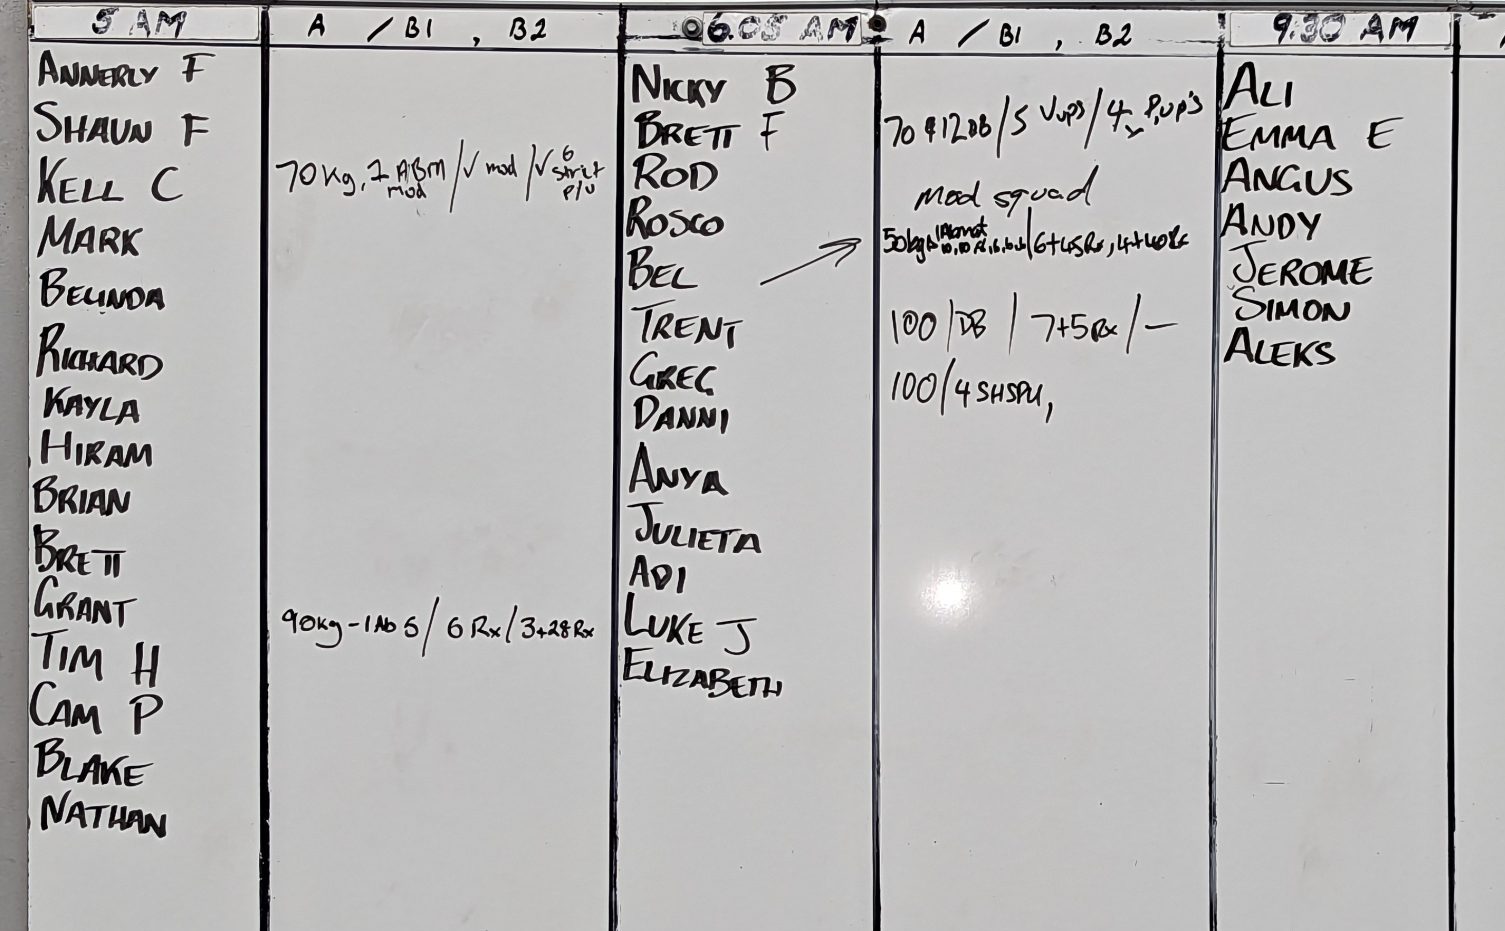 5 AM
A / B1 , B2
ANNERLY F
SHAUN F
KELL C
70kg, 7 ABM mod / √ mod / √ 6 strict P/U
MARK
BELINDA
RICHARD
KAYLA
HIRAM
BRIAN
BRETT
GRANT
90kg - 1 Ab 5 / 6 Rx / 3+28 Rx
TIM H
CAM P
BLAKE
NATHAN
6.05 AM
A / B1 , B2
NICKY B
BRETT F
70 12 DB / 5 Vups / 4 P,up's
ROD
Mod squad
ROSCO
50kg 10,10 / 6+45Rx, 4+40Rx
BEL
TRENT
100 / DB / 7+5Rx / —
GREG
100 / 4 SHSPU,
DANNI
ANYA
JULIETA
ADI
LUKE J
ELIZABETH
9:30 AM
ALI
EMMA E
ANGUS
ANDY
JEROME
SIMON
ALEKS